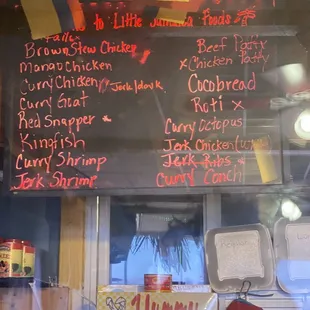 to Little Jamaica Foods
Brown Stew Chicken
Mango Chicken
Curry Chicken / Jerk/Pork
Curry Goat
Red Snapper
Kingfish
Curry Shrimp
Jerk Shrimp
Beef Patty
x Chicken Patty
Cocobread
Roti x
Curry Octopus
Jerk Chicken
Jerk Ribs
Curry Conch
Yummy